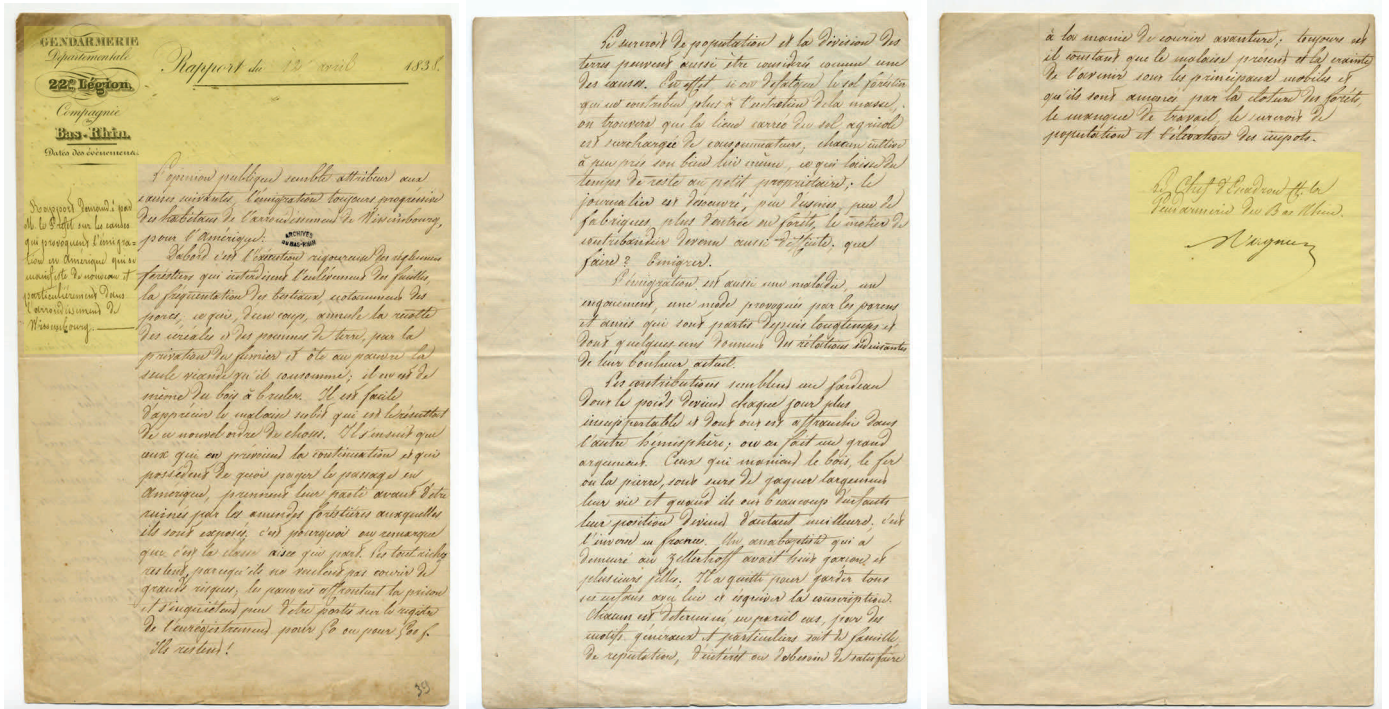 GENDARMERIE
Départementale
22e Légion.
Compagnie
du
Bas-Rhin.
Dates des événemens.
Rapport du 12 avril 1838.
Rapport demandé par
M. le Préfet sur les causes
qui provoquent l'émigra-
tion en Amérique qui se
manifeste de nouveau et
particulièrement dans
l'arrondissement de
Wissembourg.
L'opinion publique semble attribuer aux
causes suivantes, l'émigration toujours progressive
des habitans de l'arrondissement de Wissembourg,
pour l'Amérique.
ARCHIVES
DU BAS-RHIN
D'abord c'est l'exécution rigoureuse des réglemens
forestiers qui interdisent l'enlèvement des feuilles,
la fréquentation des bestiaux, notamment des
porcs, ce qui, d'un coup, annule la récolte
des céréales et des pommes de terre, par la
privation du fumier et ôte au pauvre la
seule viande qu'il consomme; il en est de
même du bois à bruler. Il est facile
d'apprécier le malaise subit qui est le résultat
de ce nouvel ordre de choses. Il s'ensuit que
ceux qui en prévoient la continuation et qui
possèdent de quoi payer le passage en
Amérique, prennent leur parti avant d'être
ruinés par les amendes forestières auxquelles
ils sont exposés, c'est pourquoi on remarque
que c'est la classe aisée qui part. Les tout riches
restent, parcequ'ils ne veulent pas courir de
grands risques; les pauvres affrontent la prison
et s'inquiètent peu d'être portés sur le registre
de l'enregistrement, pour 50 ou pour 500 f.
Ils restent!
39
Le surcroit de population et la division des
terres peuvent aussi être considérés comme une
des causes. En effet si on défalque le sol forestier
qui ne contribue plus à l'entretien de la masse,
on trouvera que la lieue carrée du sol agricole
est surchargée de consommateurs; chacun cultive
à peu près son bien lui même, ce qui laisse du
temps de reste au petit propriétaire; le
journalier est désœuvré, peu d'usines, peu de
fabriques, plus d'entrée en forêts, le métier de
contrebandier devenu aussi déstitué; que
faire? Emigrer.
L'émigration est aussi une maladie, un
engouement, une mode provoquée par les parens
et amis qui sont partis depuis longtemps et
dont quelques uns donnent des relations séduisantes
de leur bonheur actuel.
Les contributions semblent un fardeau
dont le poids devient chaque jour plus
insupportable et dont on est affranchi dans
l'autre hémisphère; on en fait un grand
argument. Ceux qui manient le bois, le fer
ou la pierre, sont surs de gagner largement
leur vie et quand ils ont beaucoup d'enfants
leur position devient d'autant meilleure; c'est
l'inverse en france. Un anabaptiste qui a
demeuré au Zillerhoff avait huit garçons et
plusieurs filles. Il a quitté pour garder tous
ses enfans avec lui et esquiver la conscription.
Chacun est déterminé, en pareil cas, par des
motifs généraux et particuliers soit de famille,
de réputation, d'intérêt ou de besoin de satisfaire
à la manie de courir avanture; toujours est
il constant que le malaise présent et la crainte
de l'avenir sont les principaux mobiles et
qu'ils sont amenés par la cloture des forêts,
le manque de travail, le surcroit de
population et l'élévation des impots.
Le Chef d'Escadron de la
Gendarmerie du Bas Rhin.